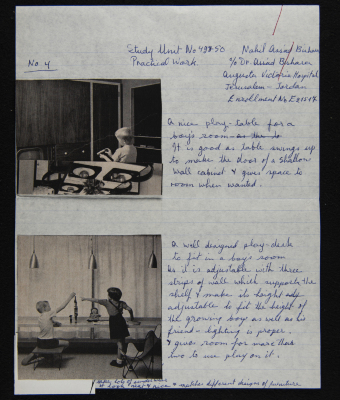 No 4
Study Unit No 49B-50
Practical Work
Nahil
c/o Dr.
Augusta Victoria Hospital
Jerusalem - Jordan
Enrollment No E
A nice play-table for a
boy's room
It is good as table swings up
to make the door of a shallow
wall cabinet & gives space to
room when wanted.
A well designed play-desk
to fit in a boys room
As it is adjustable with three
strips of wall which supports the
shelf & make its height
adjustable to fit the height of
the growing boy as well as his
friend - lighting is proper.
& gives room for more than
two to use play on it.
lots of
& look nice & matches different designs of furniture